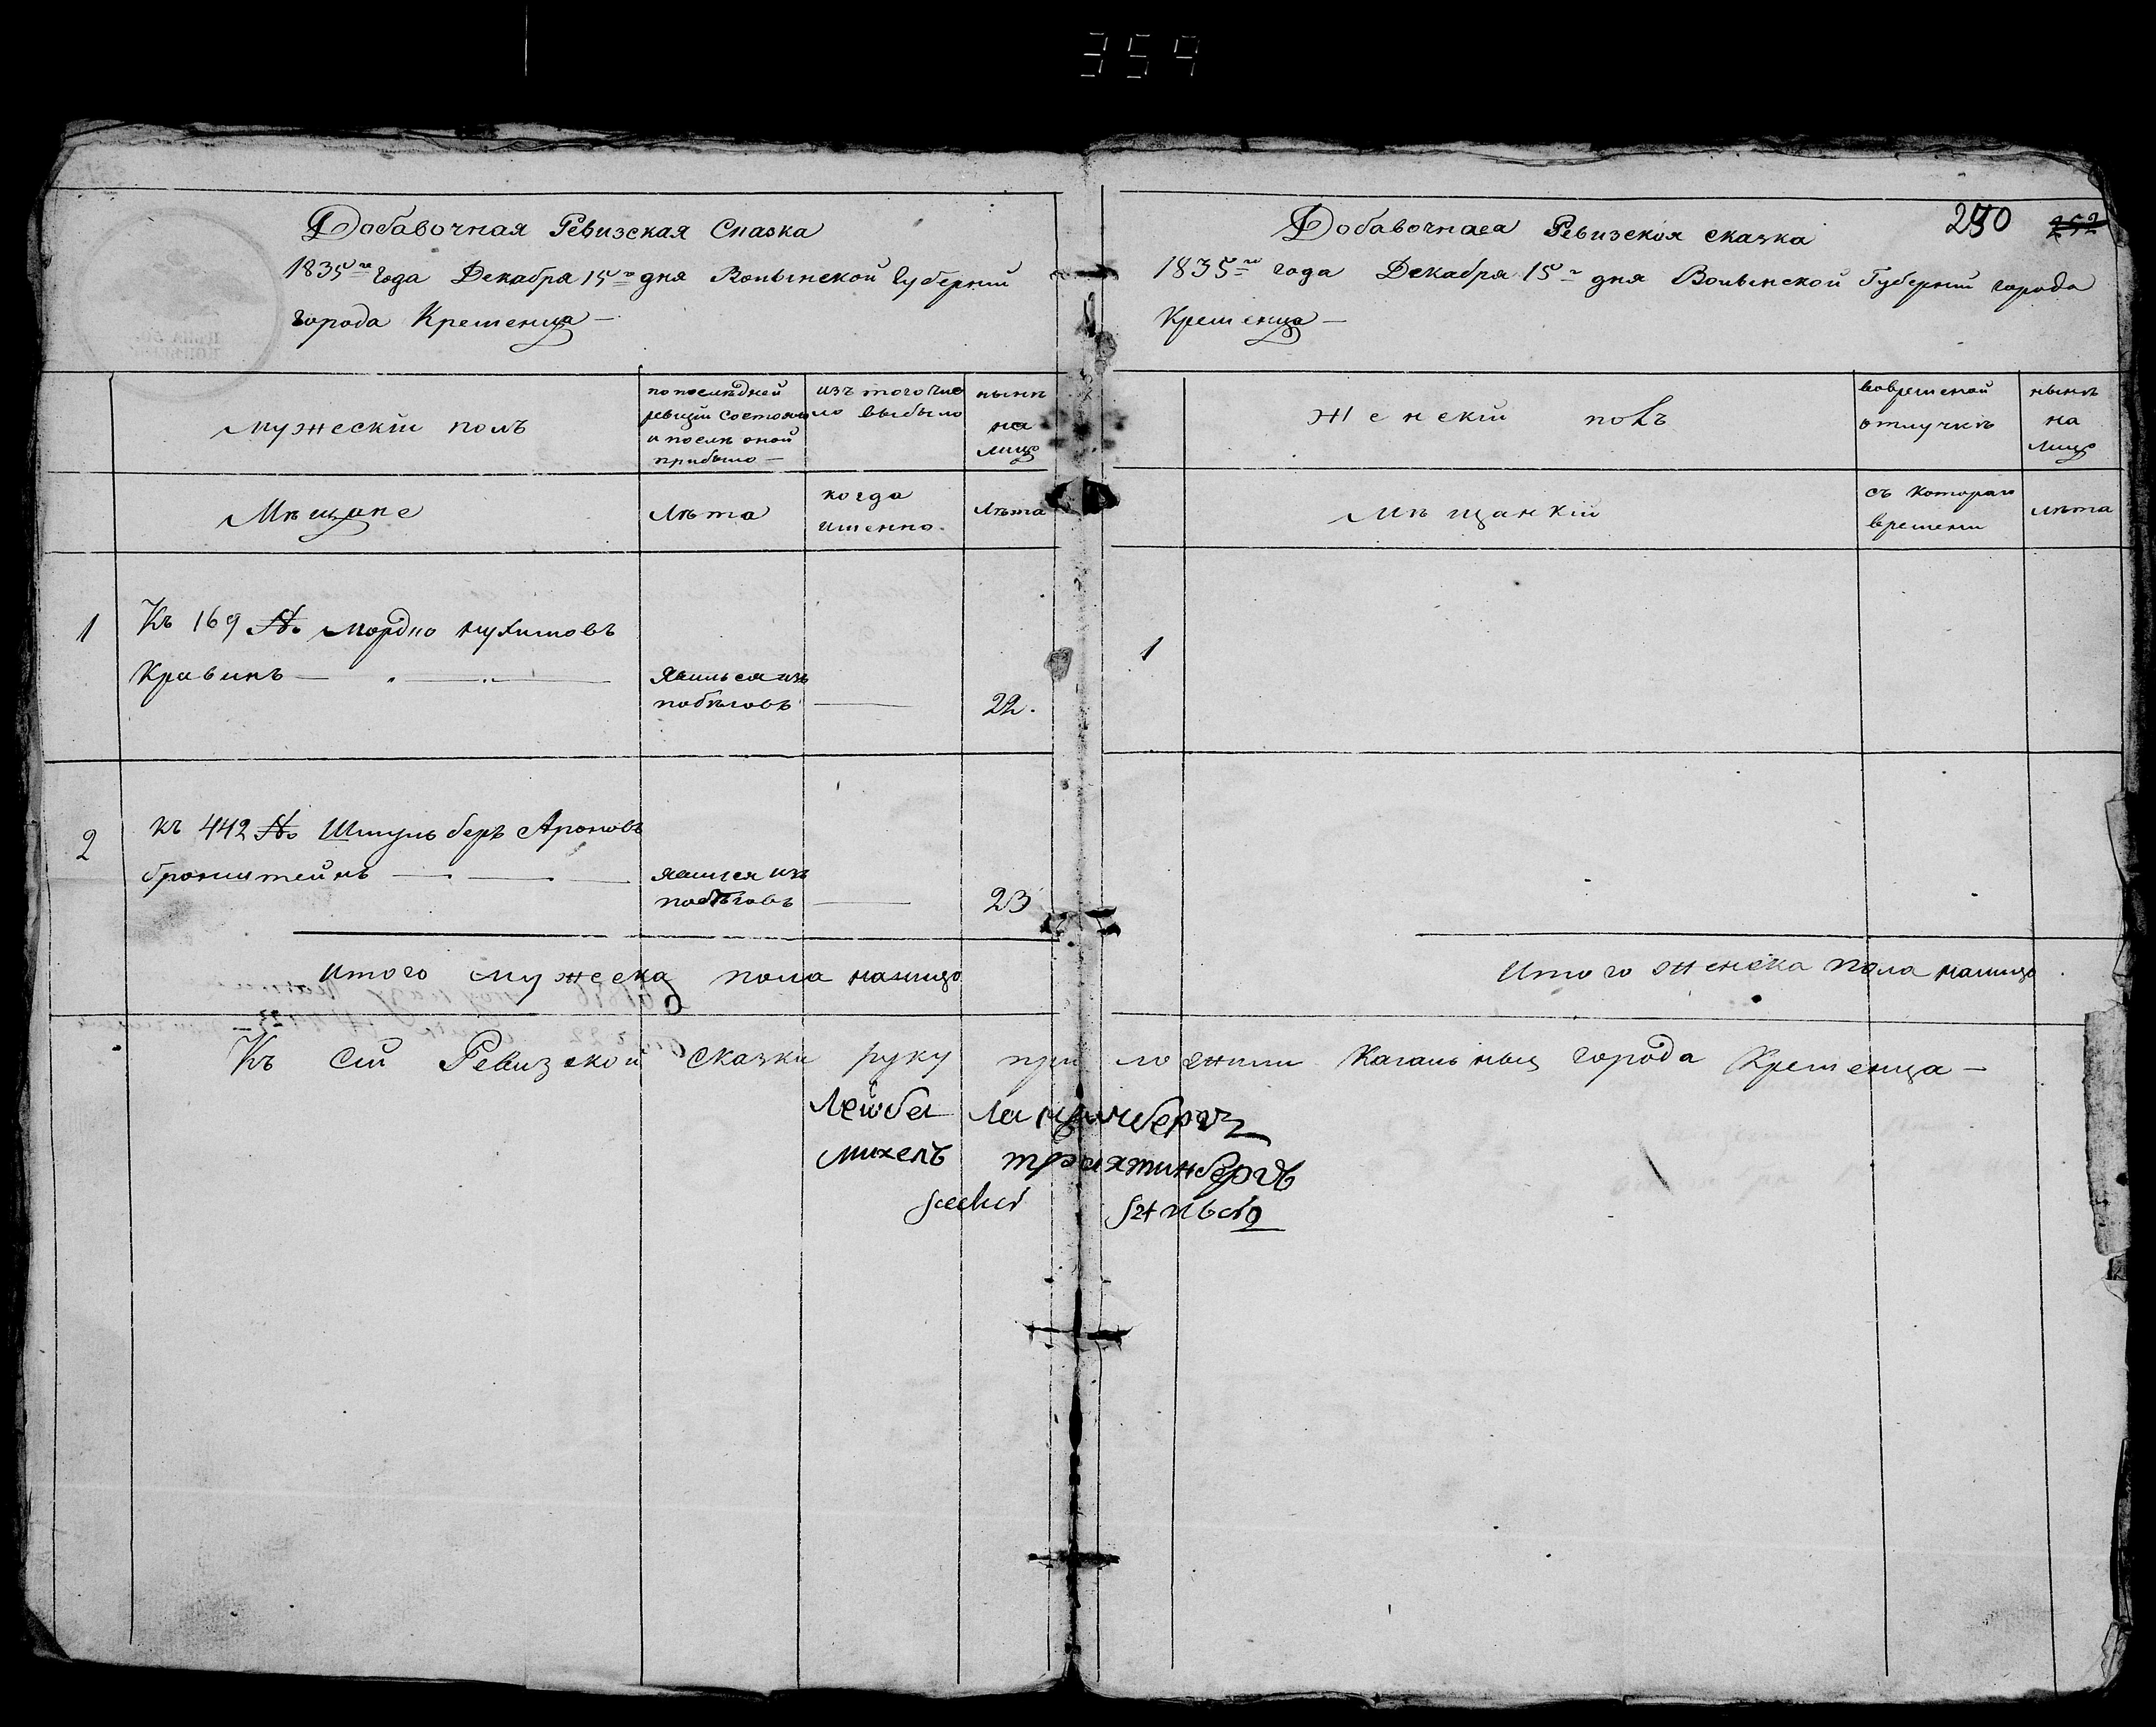 359
Добавочная Ревизская Сказка
1835го года Декабря 15го дня Волынской Губернии
города Кременца —
мужескій полъ
по последней
ревизіи состояло
и после оной
прибыло —
изъ того чис
ло выбыло
ныне
на
лицо
Мещане
Лѣта
когда
именно
Лѣта
1
Къ 169 № Мордко
Кравинъ —
явился изъ
побѣговъ
22.
2
къ 442 № Шмуль беръ Ароновъ
бронштейнъ —
явился изъ
побѣговъ
23
итого мужеска пола налицо
250 252
Добавочная Ревизская сказка
1835го года Декабря 15го дня Волынской Губерніи города
Кременца —
Женскій полъ
во временной
отлучкѣ
нынѣ
на
лицо
Мѣщанкій
съ котораго
времени
лѣта
1
Итого женска пола налицо
Къ сій Ревизской сказки руку приложили Кагальныя города Кременца —
Лейба
михель трахтинбергъ